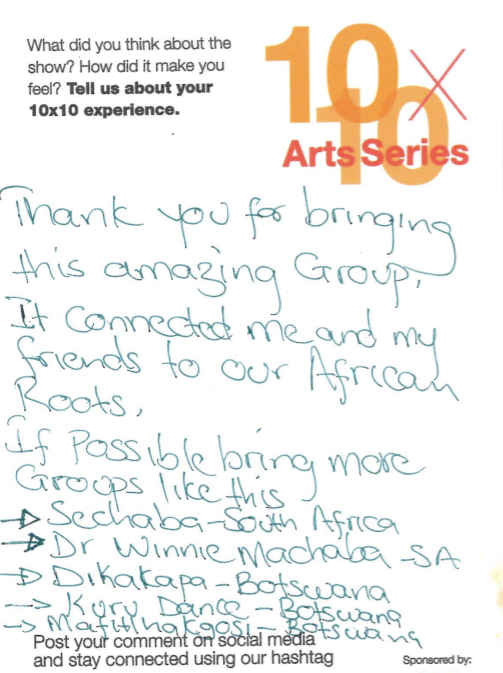 What did you think about the
show? How did it make you
feel? Tell us about your
10x10 experience.
10x10
Arts Series
Thank you for bringing
this amazing Group,
It Connected me and my
friends to our African
Roots,
If Possible bring more
Groups like this
→ Sechaba - South Africa
→ Dr Winnie Machaba - SA
→ Dikakapa - Botswana
→ Kuru Dance - Botswana
→ Mafitlhakgosi - Botswana
Post your comment on social media
and stay connected using our hashtag
Sponsored by: